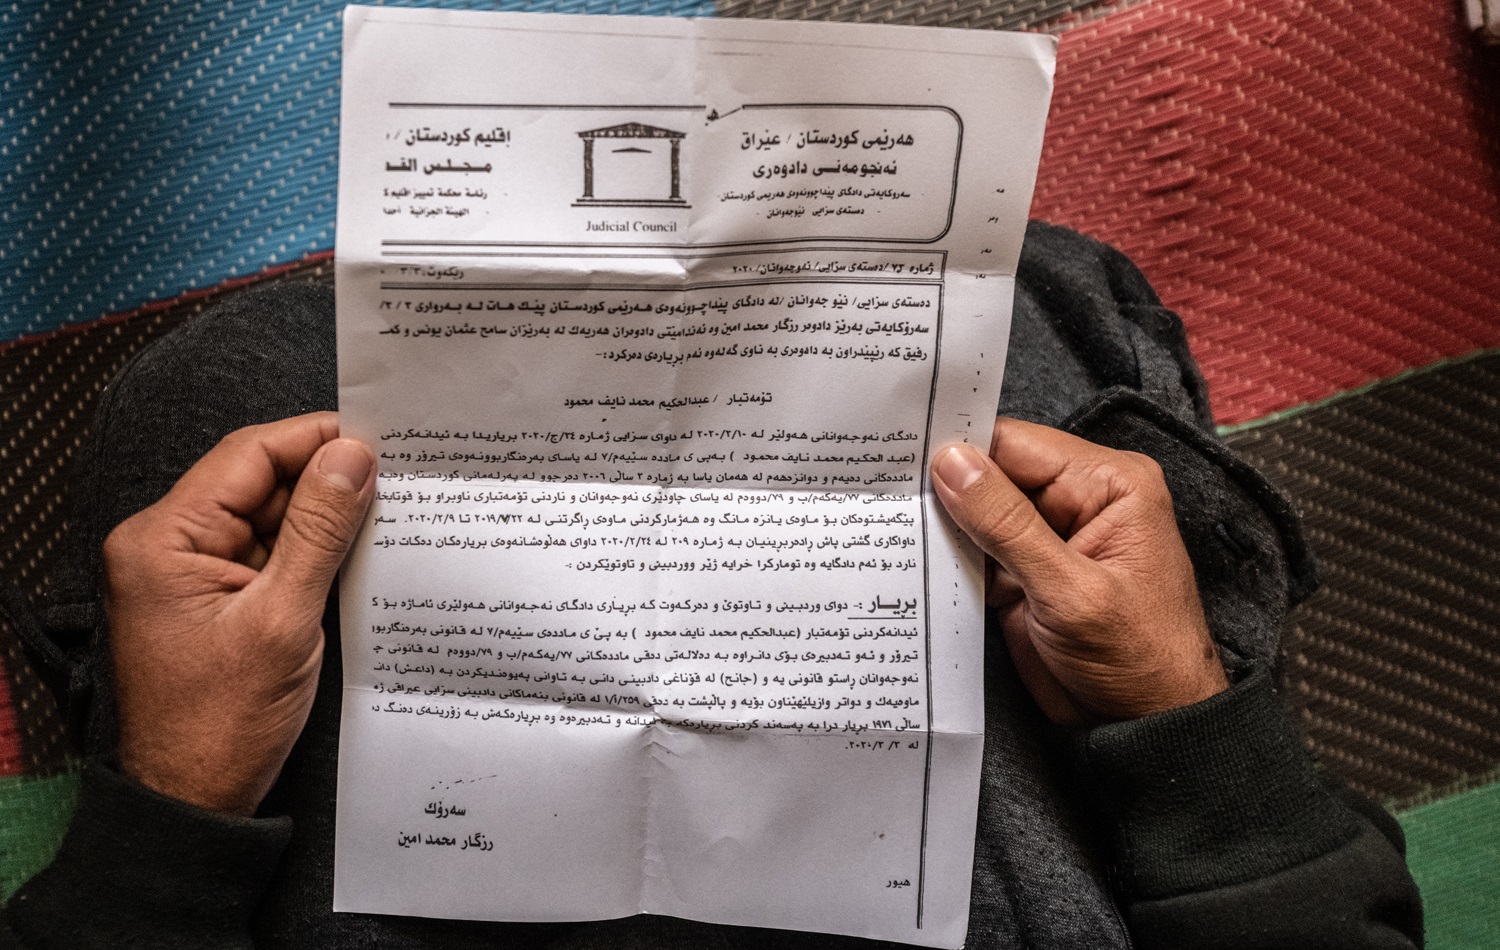 هەرێمی کوردستان / عێراق
ئەنجومەنی دادوەری
سەرۆکایەتی دادگای پێداچوونەوەی هەرێمی کوردستان
دەستەی سزایی نێوجەوانان
إقليم كوردستان /
مجلس القـ
رئاسة محكمة تمييز اقليم ك
الهيئة الجزائية احدا
Judicial Council
ژمارە ٧٢/دەستەی سزایی/ نەوجەوانان/٢٠٢٠
رێکەوت: ٣/٣
دەستەی سزایی/ نێو جەوانان /لە دادگای پێداچوونەوەی هەرێمی کوردستان پێك هات لە بەرواری ٣ / ٣/
سەرۆکایەتی بەرێز دادوەر رزگار محمد امین وە ئەندامێتی دادوەران هەریەك لە بەرێزان سامح عثمان یونس و کمـ
رفیق کە رێپێدراون بە دادوەری بە ناوی گەلەوە ئەم بریارەی دەرکرد:-
تۆمەتبار / عبدالحکیم محمد نایف محمود
دادگای نەوجەوانانی هەولێر لە ٢٠٢٠/٢/١٠ لە داوای سزایی ژمارە ٣٤/ج/٢٠٢٠ بریاریدا بە ئیدانەکردنی
(عبد الحکیم محمد نایف محمود ) بەپی ی ماددە سێیەم/٧ لە یاسای بەرەنگاربوونەوەی تیرۆر وە بە
ماددەکانی دەیەم و دوانزدەهەم لە هەمان یاسا بە ژمارە ٣ ساڵی ٢٠٠٦ دەرچوو لە پەرلەمانی کوردستان وەبە
ماددەکانی ٧٧/یەکەم/ب و ٧٩/دووەم لە یاسای چاودێری نەوجەوانان و ناردنی تۆمەتباری ناوبراو بۆ قوتابخا
پێگەیشتوەکان بۆ ماوەی یانزە مانگ وە هەژمارکردنی ماوەی ڕاگرتنی لە ٢٠١٩/٧/٢٢ تا ٢٠٢٠/٢/٩. سەر
داواکاری گشتی پاش ڕادەربرینیان بە ژمارە ٢٠٩ لە ٢٠٢٠/٢/٢٤ داوای هەڵوەشانەوەی بریارەکان دەکات دۆسـ
نارد بۆ ئەم دادگایە وە تۆمارکرا خرایە ژێر ووردبینی و تاوتوێکردن :-
بریار :- دوای وردبینی و تاوتوێ و دەرکەوت کە بریاری دادگای نەجەوانانی هەولێری ئاماژە بۆ ک
ئیدانەکردنی تۆمەتبار (عبدالحکیم محمد نایف محمود ) بە پێ ی ماددەی سێیەم/٧ لە قانونی بەرەنگاربوو
تیرۆر و ئەو تەدبیرەی بۆی دانراوە بە دەلالەتی دەقی ماددەکانی ٧٧/یەکەم/ب و ٧٩/دووەم لە قانونی چـ
نەوجەوانان ڕاستو قانونی یە و (جانح) لە قۆناغی دادبینی دانی بە تاوانی پەیوەندیکردن بە (داعش) دانـ
ماوەیەك و دواتر وازیلێهێناون بۆیە و پاڵپشت بە دەقی ٢٥٩/أ/١ لە قانونی بنەماکانی دادبینی سزایی عیراقی ژە
ساڵی ١٩٧١ بریار درا بە پەسەند کردنی بریارەکە بە ئیدانە و تەدبیرەوە وە بریارەکەش بە زۆرینەی دەنگ دە
لە ٣/ ٢٠٢٠/٣.
سەرۆك
رزگار محمد امین
هیور